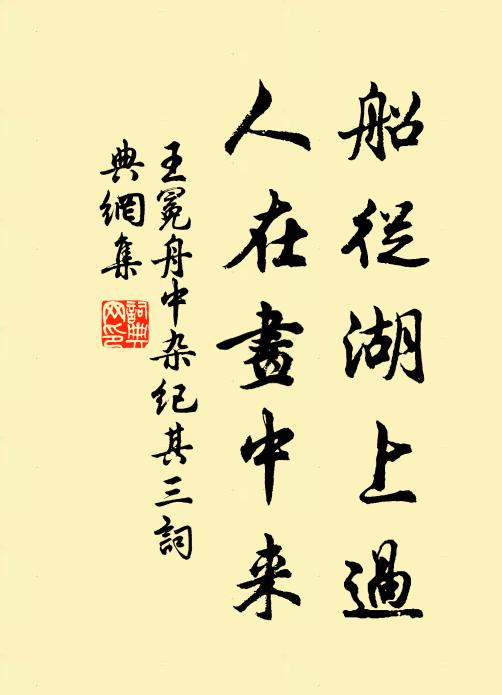 船從湖上過
人在畫中来
王冕舟中杂纪其三詞
典網集
詞典
网印